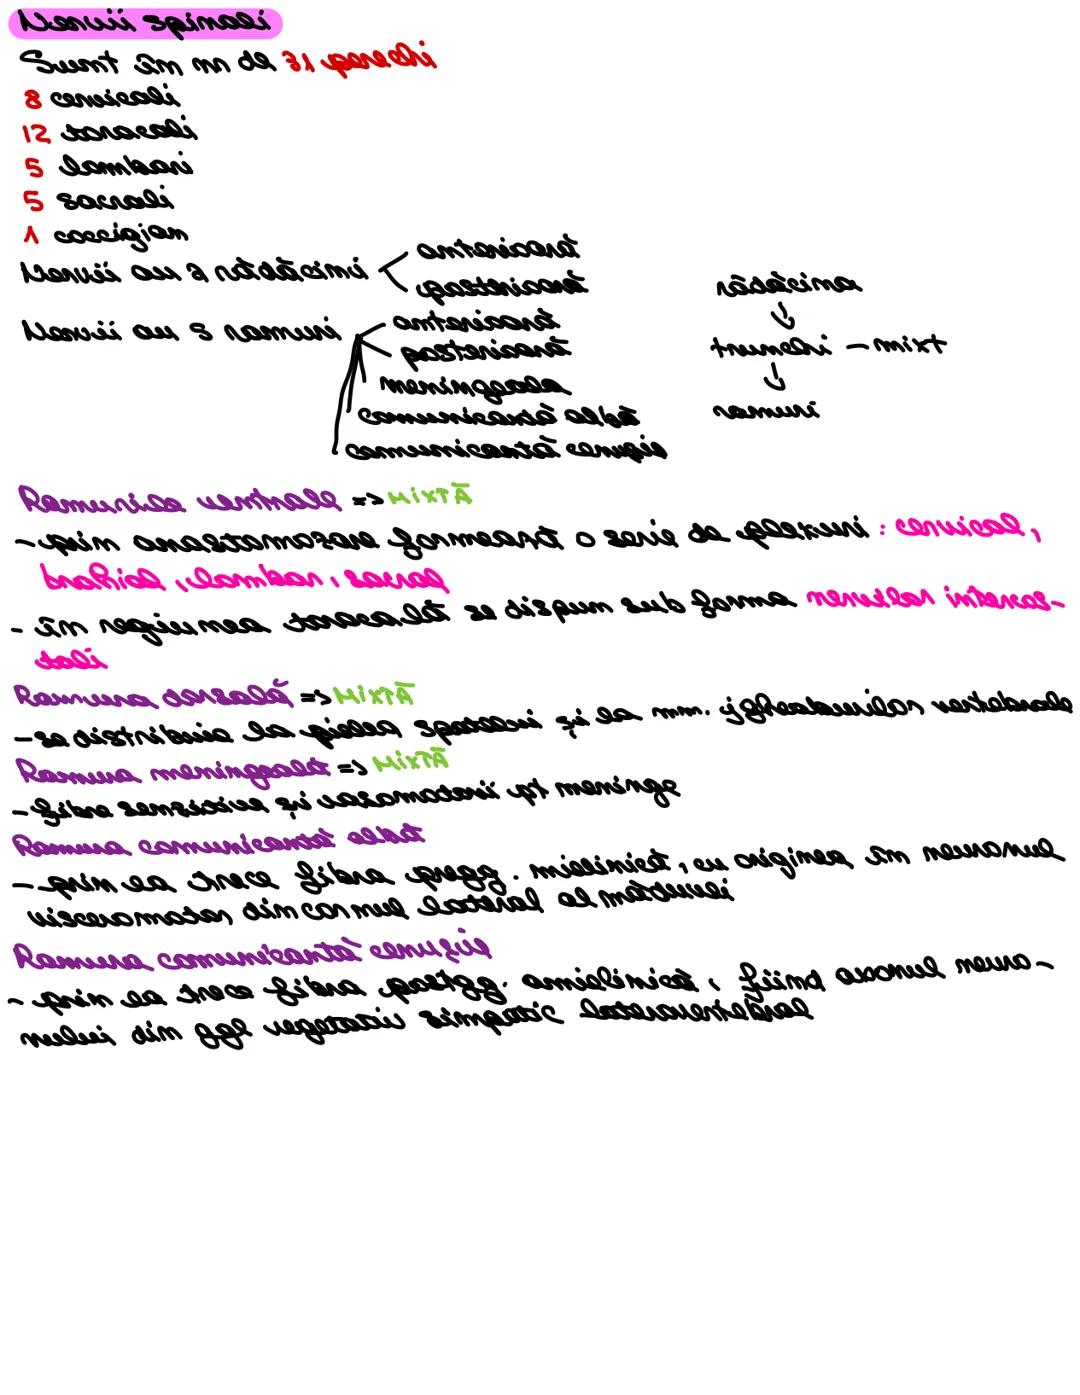 Nervii spinali
Sunt în nr de 31 perechi
8 cervicali
12 toracali
5 lombari
5 sacrali
1 coccigian
Nervii au 2 rădăcini
anterioară
posterioară
Nervii au 5 ramuri
anterioară
posterioară
meningeala
comunicantă albă
comunicantă cenușie
rădăcina
trunchi - mixt
ramuri
Ramurile ventrale => MIXTĂ
- prin anastomozare formează o serie de plexuri : cervical,
brahial, lombar, sacral
- în regiunea toracală se dispun sub forma nervilor intercos-
tali
Ramura dorsală => MIXTĂ
- se distribuie la pielea spatelui și la mm. jgheaburilor vertebrale
Ramura meningeală => MIXTĂ
- fibre senzitive și vasomotorii pt meninge
Ramura comunicantă albă
- prin ea trece fibra pregg. mielinică, cu originea în neuronul
visceromotor din cornul lateral al măduvei
Ramura comunicantă cenușie
- prin ea trece fibra postgg. amielinică, fiind axonul neuro-
nului din ggl vegetativ simpatic laterovertebral